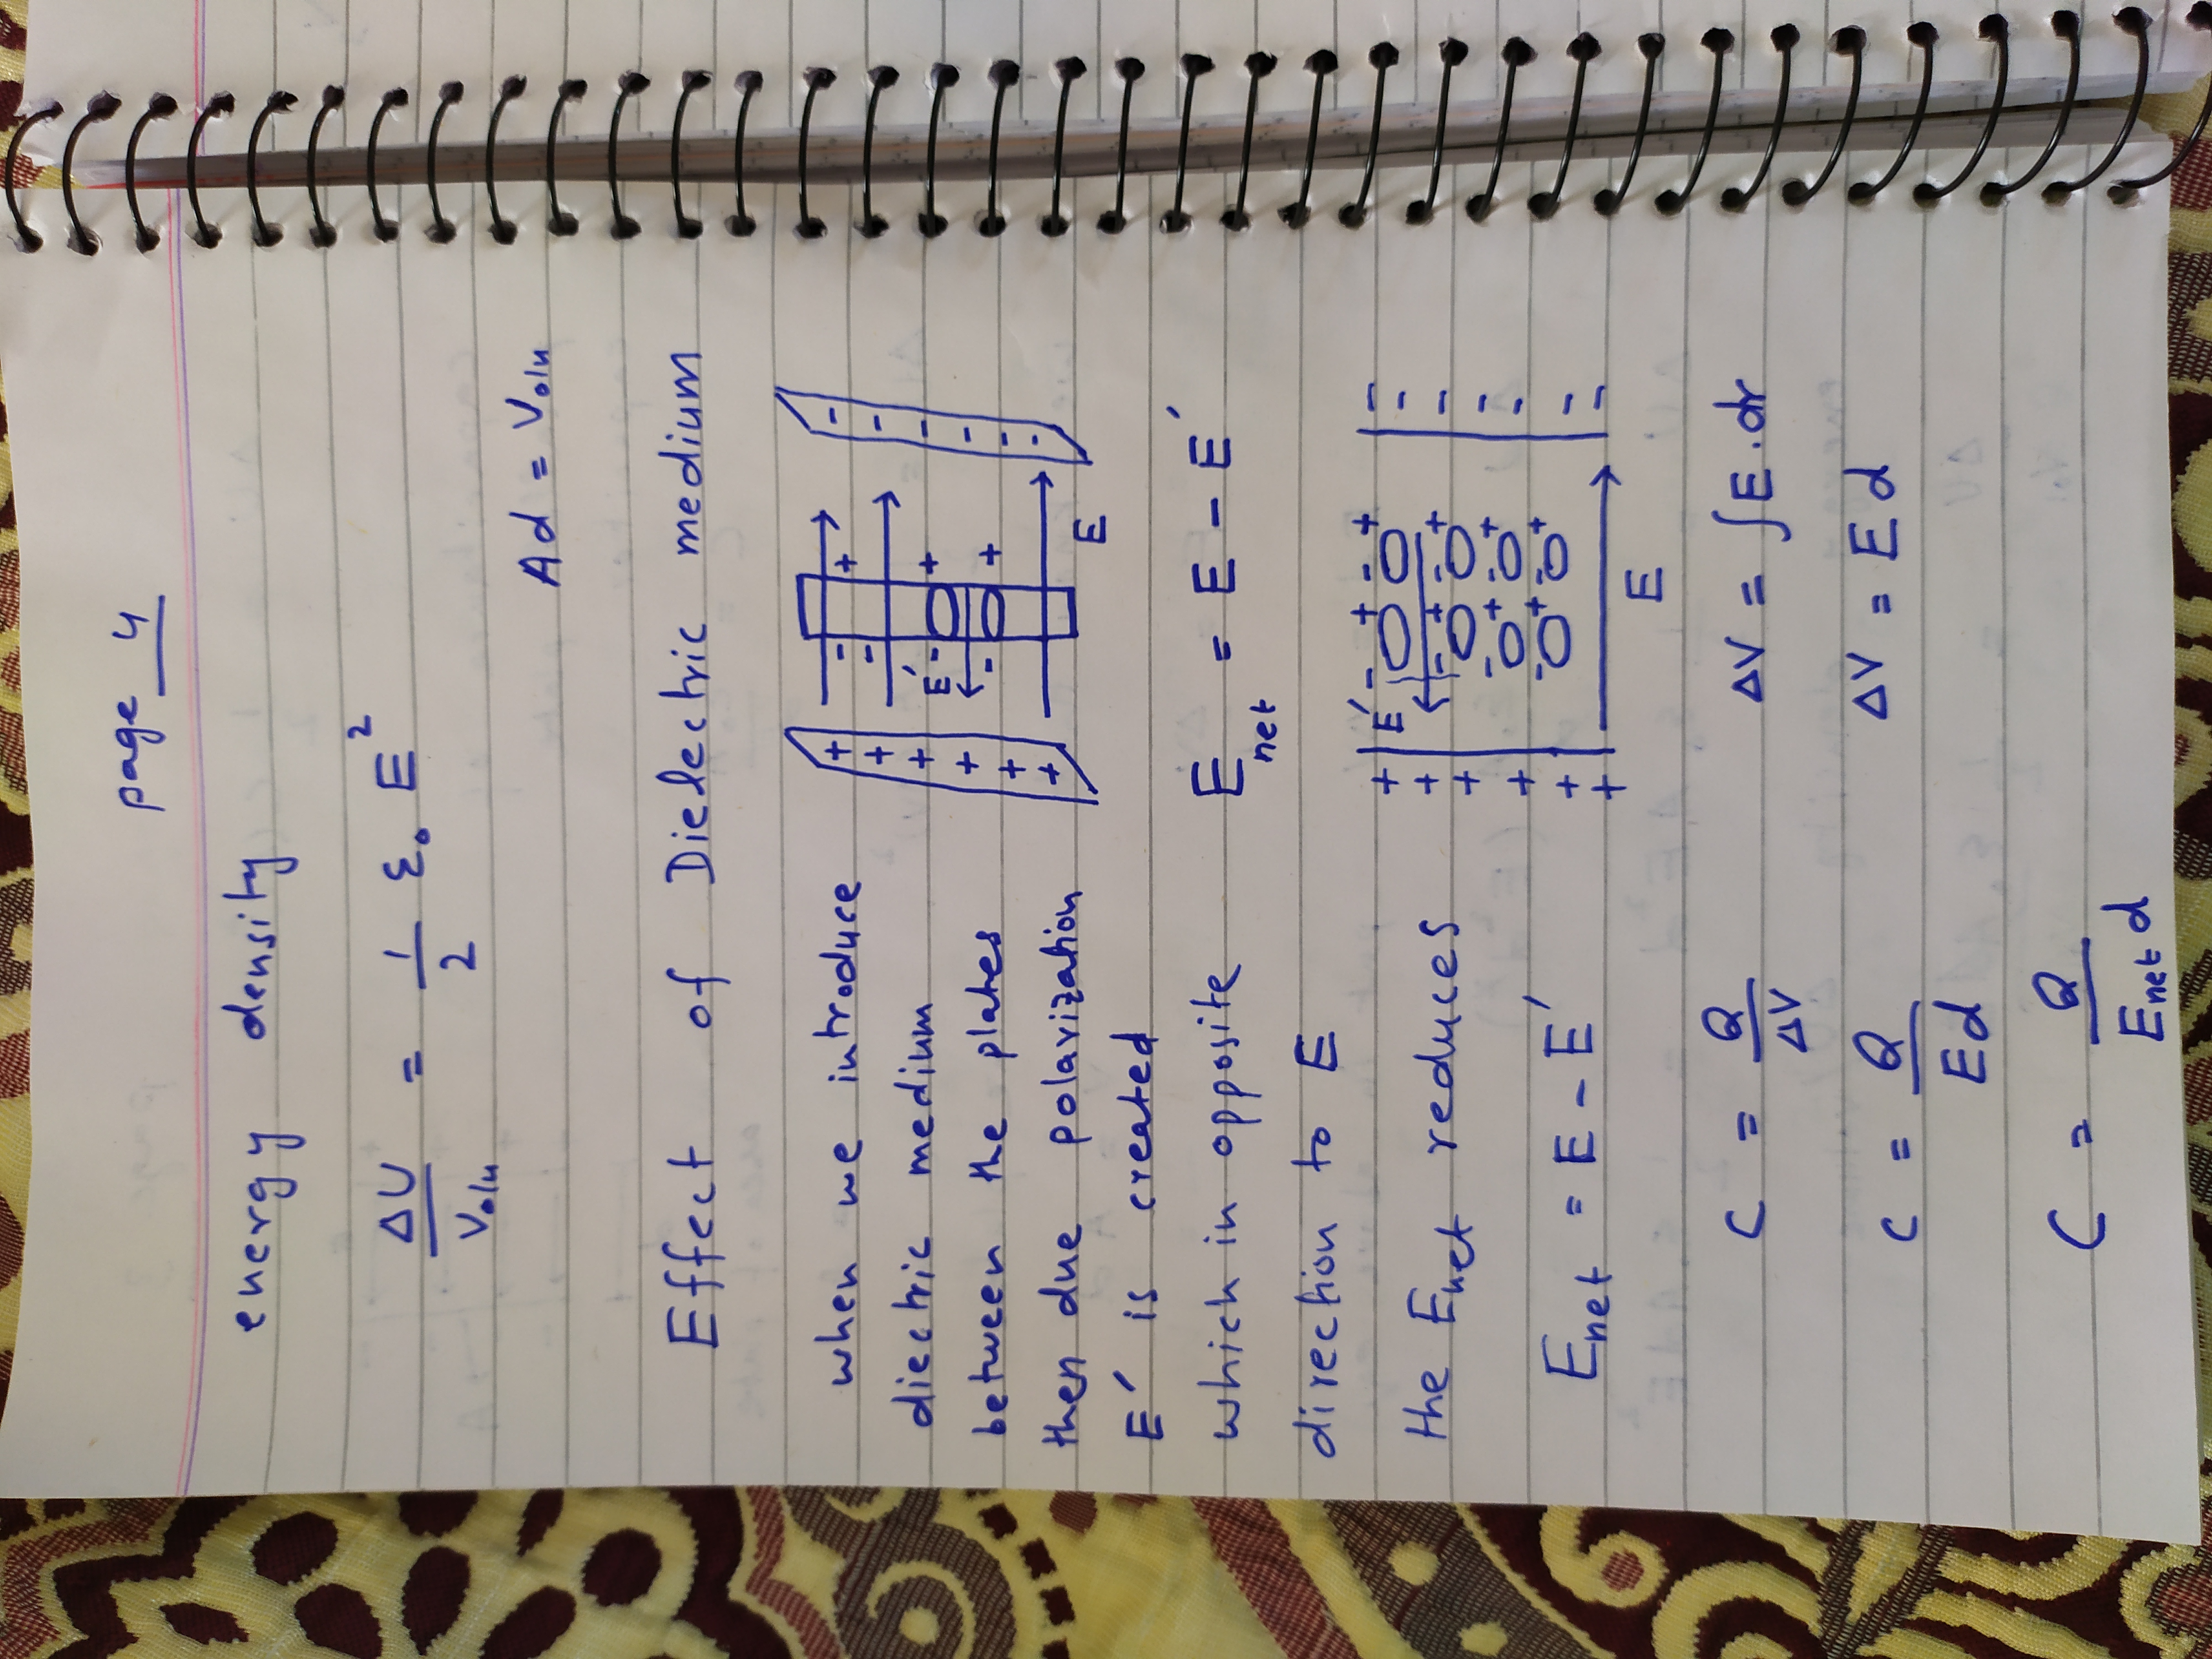 page 4
energy density
ΔU/Volu = 1/2 ε₀ E²
Ad = Volu
Effect of Dielectric medium
when we introduce
diectric medium
between the plates
then due polarization
E′ is created
which in opposite
direction to E
the Enet reduces
Enet = E - E′
+ + + + + +
- - - -
E′
+ + +
- - - - - -
E
Enet = E - E′
+ + + + + +
E′ - + - +
- + - +
- + - +
- + - +
- - - - - - -
E
C = Q/ΔV
ΔV = ∫E.dr
C = Q/Ed
ΔV = Ed
C = Q/Enet d